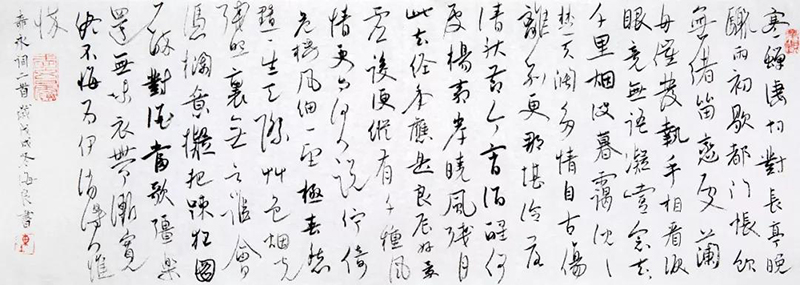 寒蟬淒切對長亭晚
驟雨初歇都門帳飲
無緒留戀處蘭
舟催發執手相看淚
眼竟無語凝噎念去
千里烟波暮靄沈〻
楚天闊多情自古傷
離別更那堪冷落
清秋節今宵酒醒何
處楊柳岸曉風殘月
此去經年應是良辰好景
虛設便縱有千種風
情更與何人說佇倚
危樓風細〻望極春愁
黯〻生天際艸色烟光
殘照裏無言誰會
憑欄意擬把疎狂圖
一醉對酒當歌強樂
還無味衣帶漸寬
終不悔為伊消得人憔
悴
柳永詞二首歲戊戌冬海泉書